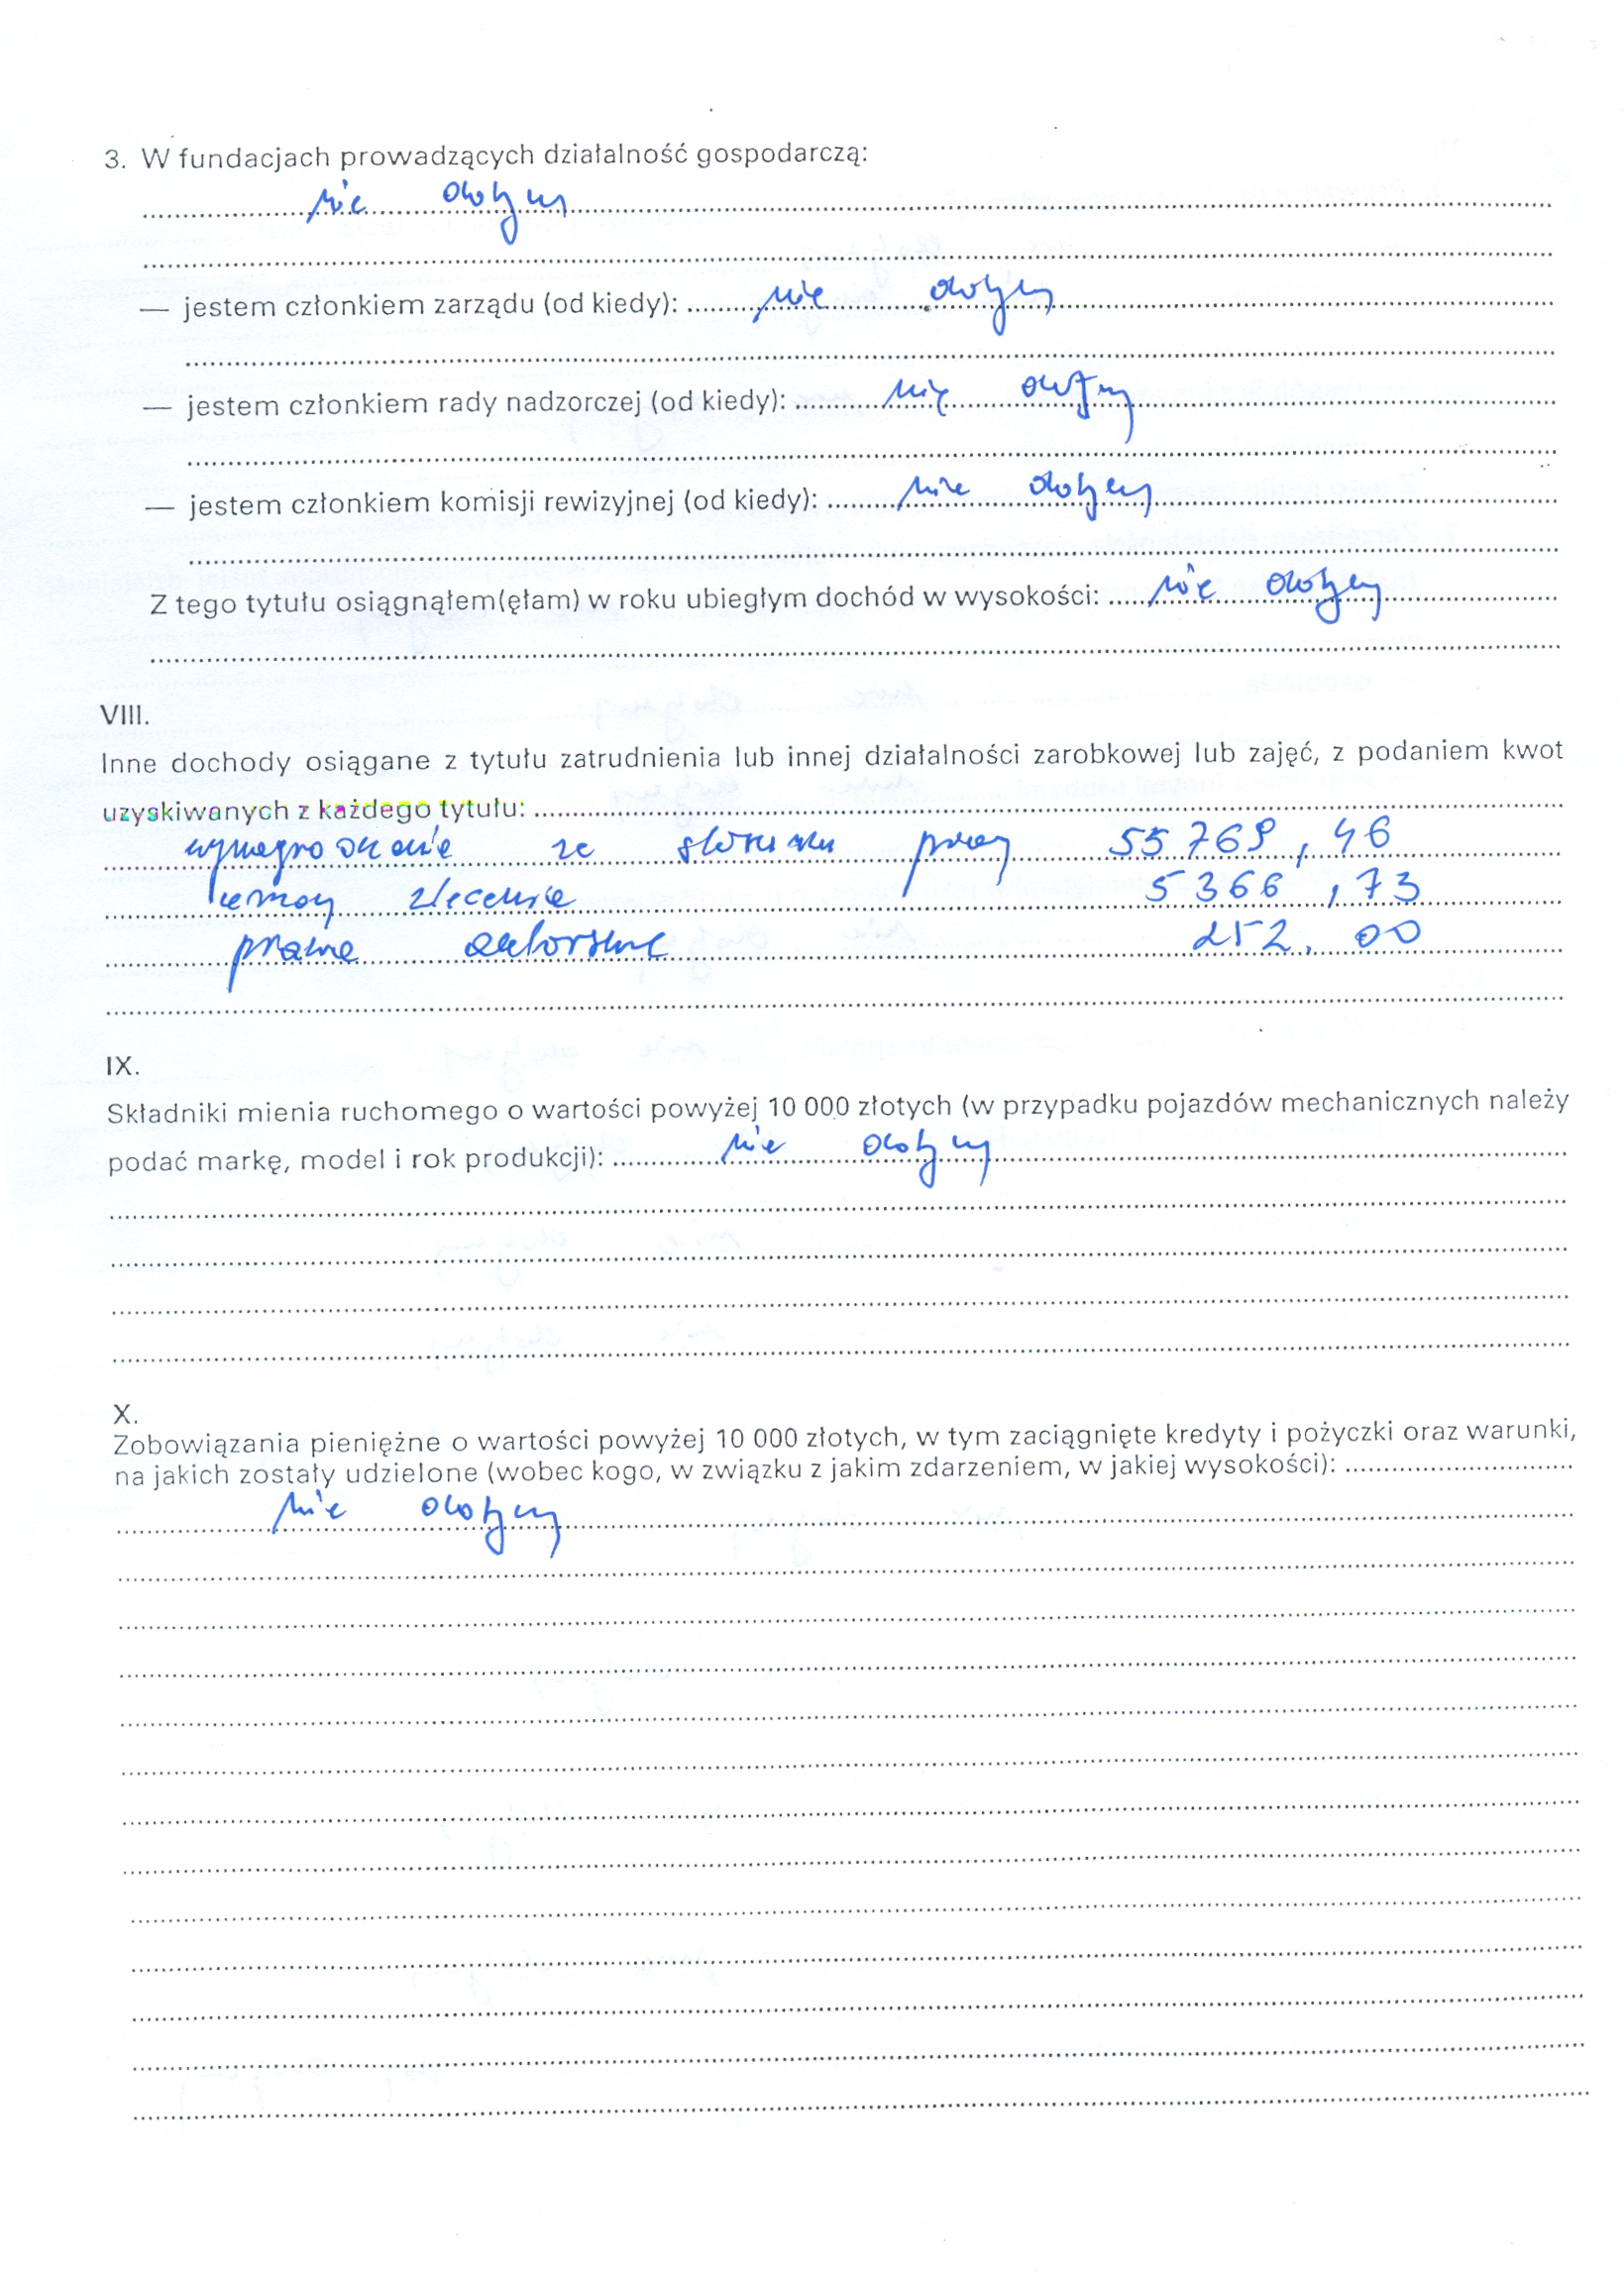 3. W fundacjach prowadzących działalność gospodarczą:
nie dotyczy
— jestem członkiem zarządu (od kiedy): nie dotyczy
— jestem członkiem rady nadzorczej (od kiedy): nie dotyczy
— jestem członkiem komisji rewizyjnej (od kiedy): nie dotyczy
Z tego tytułu osiągnąłem(ęłam) w roku ubiegłym dochód w wysokości: nie dotyczy
VIII.
Inne dochody osiągane z tytułu zatrudnienia lub innej działalności zarobkowej lub zajęć, z podaniem kwot
uzyskiwanych z każdego tytułu:
wynagrodzenie ze stosunku pracy 55 769, 46
umowy zlecenie 5 366, 73
prawa autorskie 252, 00
IX.
Składniki mienia ruchomego o wartości powyżej 10 000 złotych (w przypadku pojazdów mechanicznych należy
podać markę, model i rok produkcji): nie dotyczy
X.
Zobowiązania pieniężne o wartości powyżej 10 000 złotych, w tym zaciągnięte kredyty i pożyczki oraz warunki,
na jakich zostały udzielone (wobec kogo, w związku z jakim zdarzeniem, w jakiej wysokości):
nie dotyczy